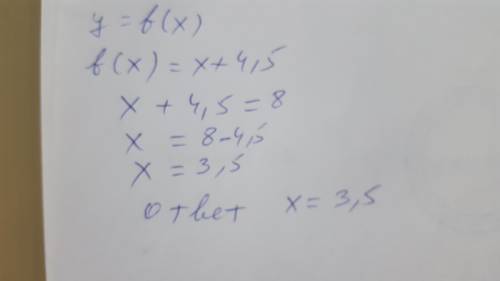 y = f(x)
f(x) = x + 4,5
x + 4,5 = 8
x = 8 - 4,5
x = 3,5
Ответ x = 3,5